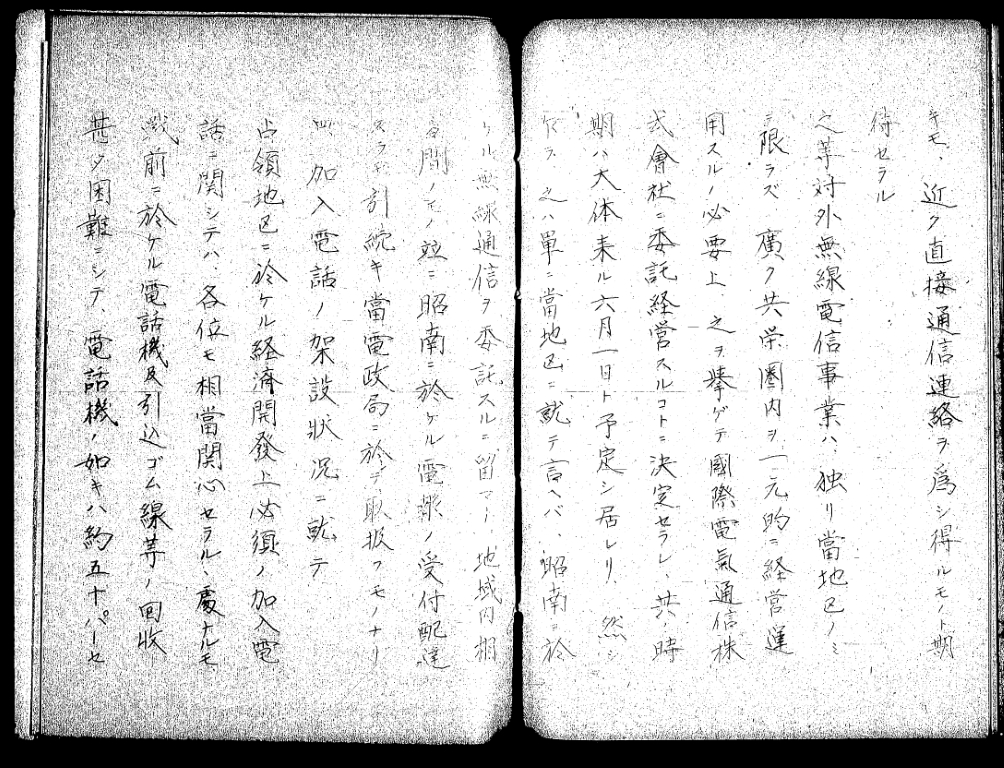 キモ、近ク直接通信連絡ヲ為シ得ルモノト期
待セラル
之等対外無線電信事業ハ、独リ當地区ノミ
ニ限ラズ、廣ク共栄圏内ヲ一元的ニ経営運
用スルノ必要上、之ヲ挙ゲテ國際電氣通信株
式會社ニ委託経営スルコトニ決定セラレ、其ノ時
期ハ大体来ル六月一日ト予定シ居レリ、然シ
乍ラ、之ハ單ニ當地区ニ就テ言ヘバ、昭南ニ於
ケル無線通信ヲ委託スルニ留マリ、地域内相
互間ノモノ並ニ昭南ニ於ケル電報ノ受付配達
ハ引続キ當電政局ニ於テ取扱フモノナリ
加入電話ノ架設狀況ニ就テ
占領地区ニ於ケル経済開發上必須ノ加入電
話ニ関シテハ、各位モ相當関心セラルヽ處ナルモ、
戦前ニ於ケル電話機及引込ゴム線等ノ回收
甚ダ困難ニシテ、電話機ノ如キハ約五十パーセ